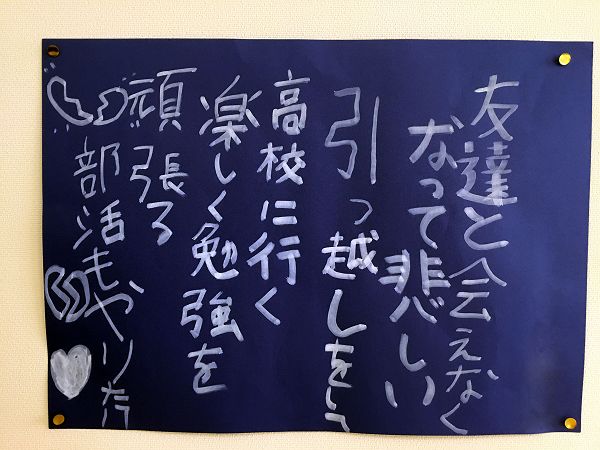 友達と会えなく
なって悲しい
引っ越しを
高校に行く
楽しく勉強を
頑張る
部活もやりた